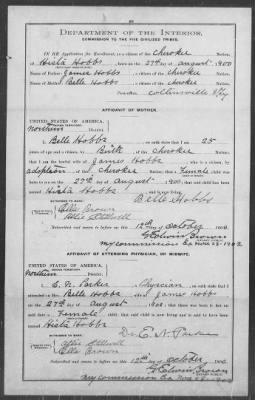 DEPARTMENT OF THE INTERIOR,
COMMISSION TO THE FIVE CIVILIZED TRIBES.
IN RE Application for Enrollment, as a citizen of the Cherokee Nation,
of Hista Hobbs, born on the 27th day of August, 1900
Name of Father: James Hobbs a citizen of the Cherokee Nation.
Name of Mother: Belle Hobbs a citizen of the Cherokee Nation.
Collinsville I.Ty.
AFFIDAVIT OF MOTHER.
UNITED STATES OF AMERICA,
INDIAN TERRITORY,
Northern District.
I, Belle Hobbs, on oath state that I am 25
years of age and a citizen, by Birth, of the Cherokee Nation;
that I am the lawful wife of James Hobbs, who is a citizen, by
adoption of Cherokee Nation; that a Female child was
born to me on the 27th day of August, 1900, that said child has been
named Hista Hobbs, and is now living.
Belle Hobbs
Ella Brown
Allie Stillwell
Subscribed and sworn to before me this 12th day of October, 1900.
G. Edwin Brown
NOTARY PUBLIC.
My commission Ex Nov 23-1902
AFFIDAVIT OF ATTENDING PHYSICIAN, OR MIDWIFE.
UNITED STATES OF AMERICA,
INDIAN TERRITORY,
Northern District.
I, E. N. Parker, a Physician, on oath state that I
attended on Mrs. Belle Hobbs, wife of James Hobbs
on the 27th day of August, 1900; that there was born to her on said
date a Female child; that said child is now living and is said to have been
named Hista Hobbs
Dr. E. N. Parker
Allie Stillwell
Ella Brown
Subscribed and sworn to before me this 12th day of October, 1900.
G. Edwin Brown
NOTARY PUBLIC.
My commission Ex Nov 23-1902